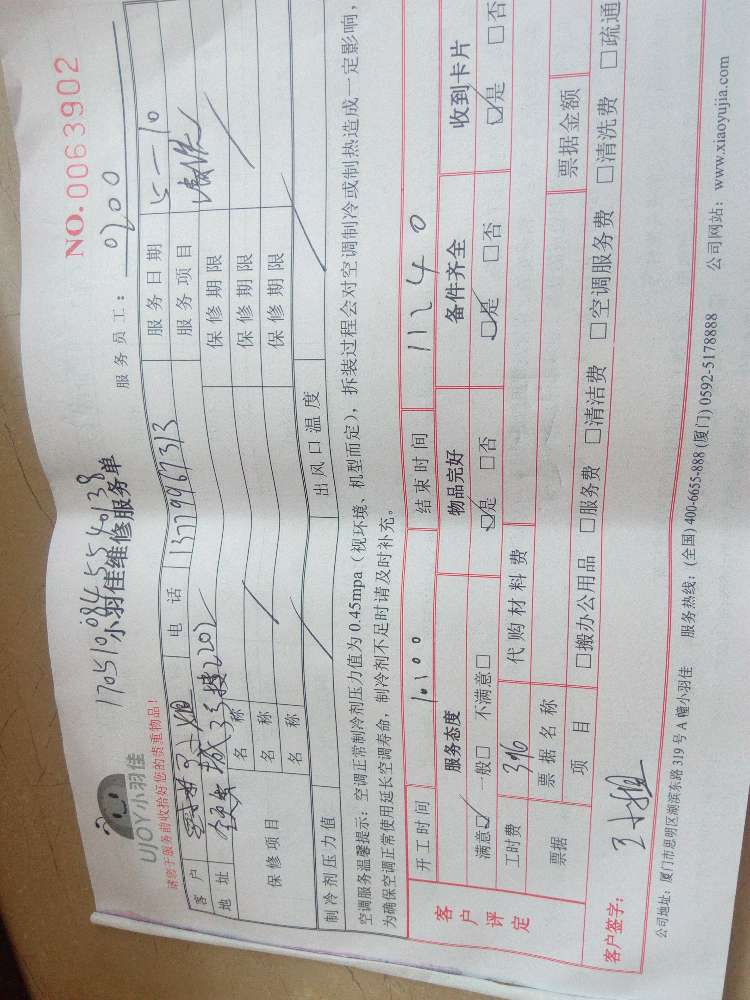 17051084554038
UJOY小羽佳
小羽佳维修服务单
NO.0063902
请您于服务前收拾好您的贵重物品!
服务员工: 0200
客户 电话 13779967313 服务日期 5-10
地址 3号楼2202 服务项目
保修项目 名称 保修期限
名称 保修期限
名称 保修期限
制冷剂压力值 出风口温度
空调服务温馨提示: 空调正常制冷剂压力值为0.45mpa(视环境、机型而定), 拆装过程会对空调制冷或制热造成一定影响,
为确保空调正常使用延长空调寿命, 制冷剂不足时请及时补充。
客户评定 开工时间 10:00 结束时间 1124 0
服务态度 物品完好 备件齐全 收到卡片
满意☑ 一般□ 不满意□ ☑是 □否 ☑是 □否 ☑是 □否
工时费 396 代购材料费
票据 票据名称 票据金额
项目 □搬办公用品 □服务费 □清洁费 □空调服务费 □清洗费 □疏通
客户签字: 王小姐
公司地址: 厦门市思明区湖滨东路319号A幢小羽佳 服务热线: (全国) 400-6655-888 (厦门) 0592-5178888 公司网站: www.xiaoyujia.com